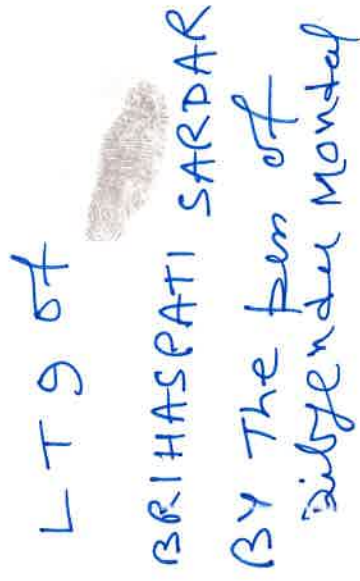 LTI of
BRIHASPATI SARDAR
BY The pen of
Dibyendu Mondal